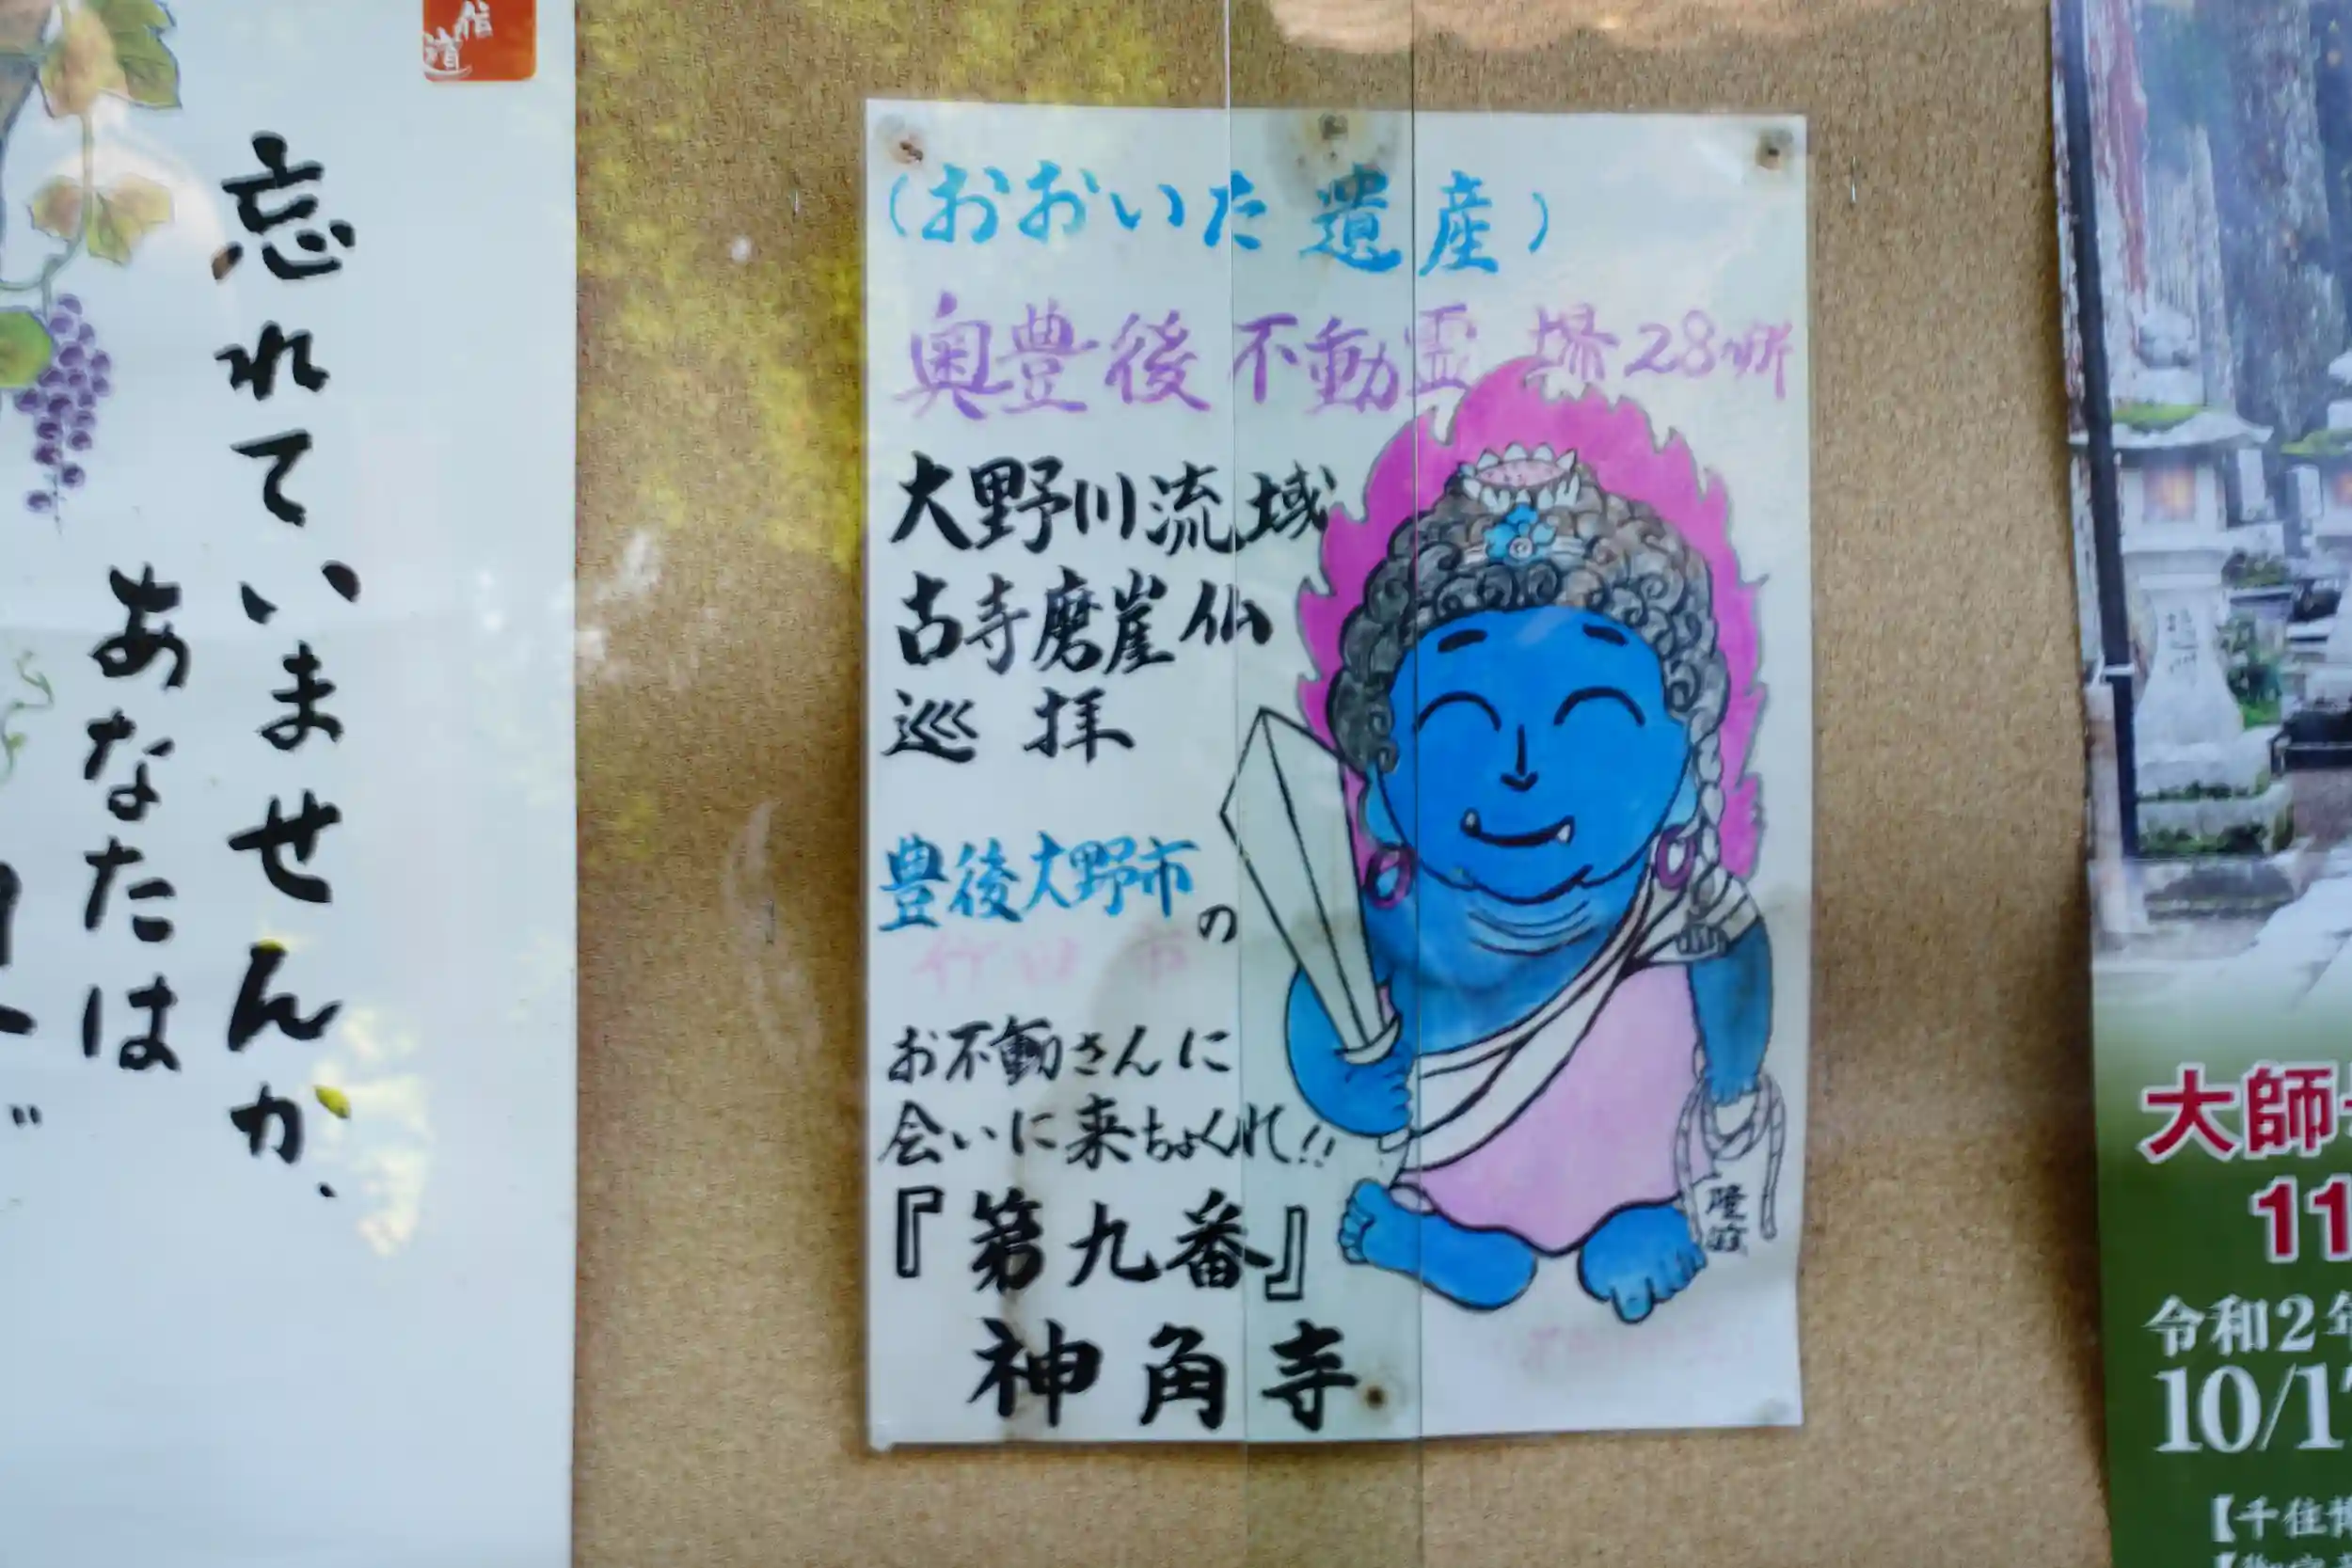 忘れていませんか、
あなたは
（おおいた遺産）
奥豊後不動霊場28ヶ所
大野川流域
古寺磨崖仏
巡拝
豊後大野市
竹田市
の
お不動さんに
会いに来ちょくれ!!
『第九番』
神角寺
大師
11
令和2年
10/17
【千住